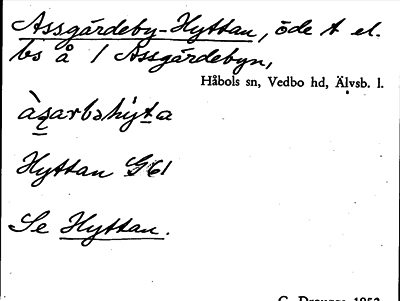 Assgärdeby-Hyttan, öde t el.
bs å / Assgärdebyn,
Håbols sn, Vedbo hd, Älvsb. l.
àsarbəhy̌ta
Hyttan G61
Se Hyttan.